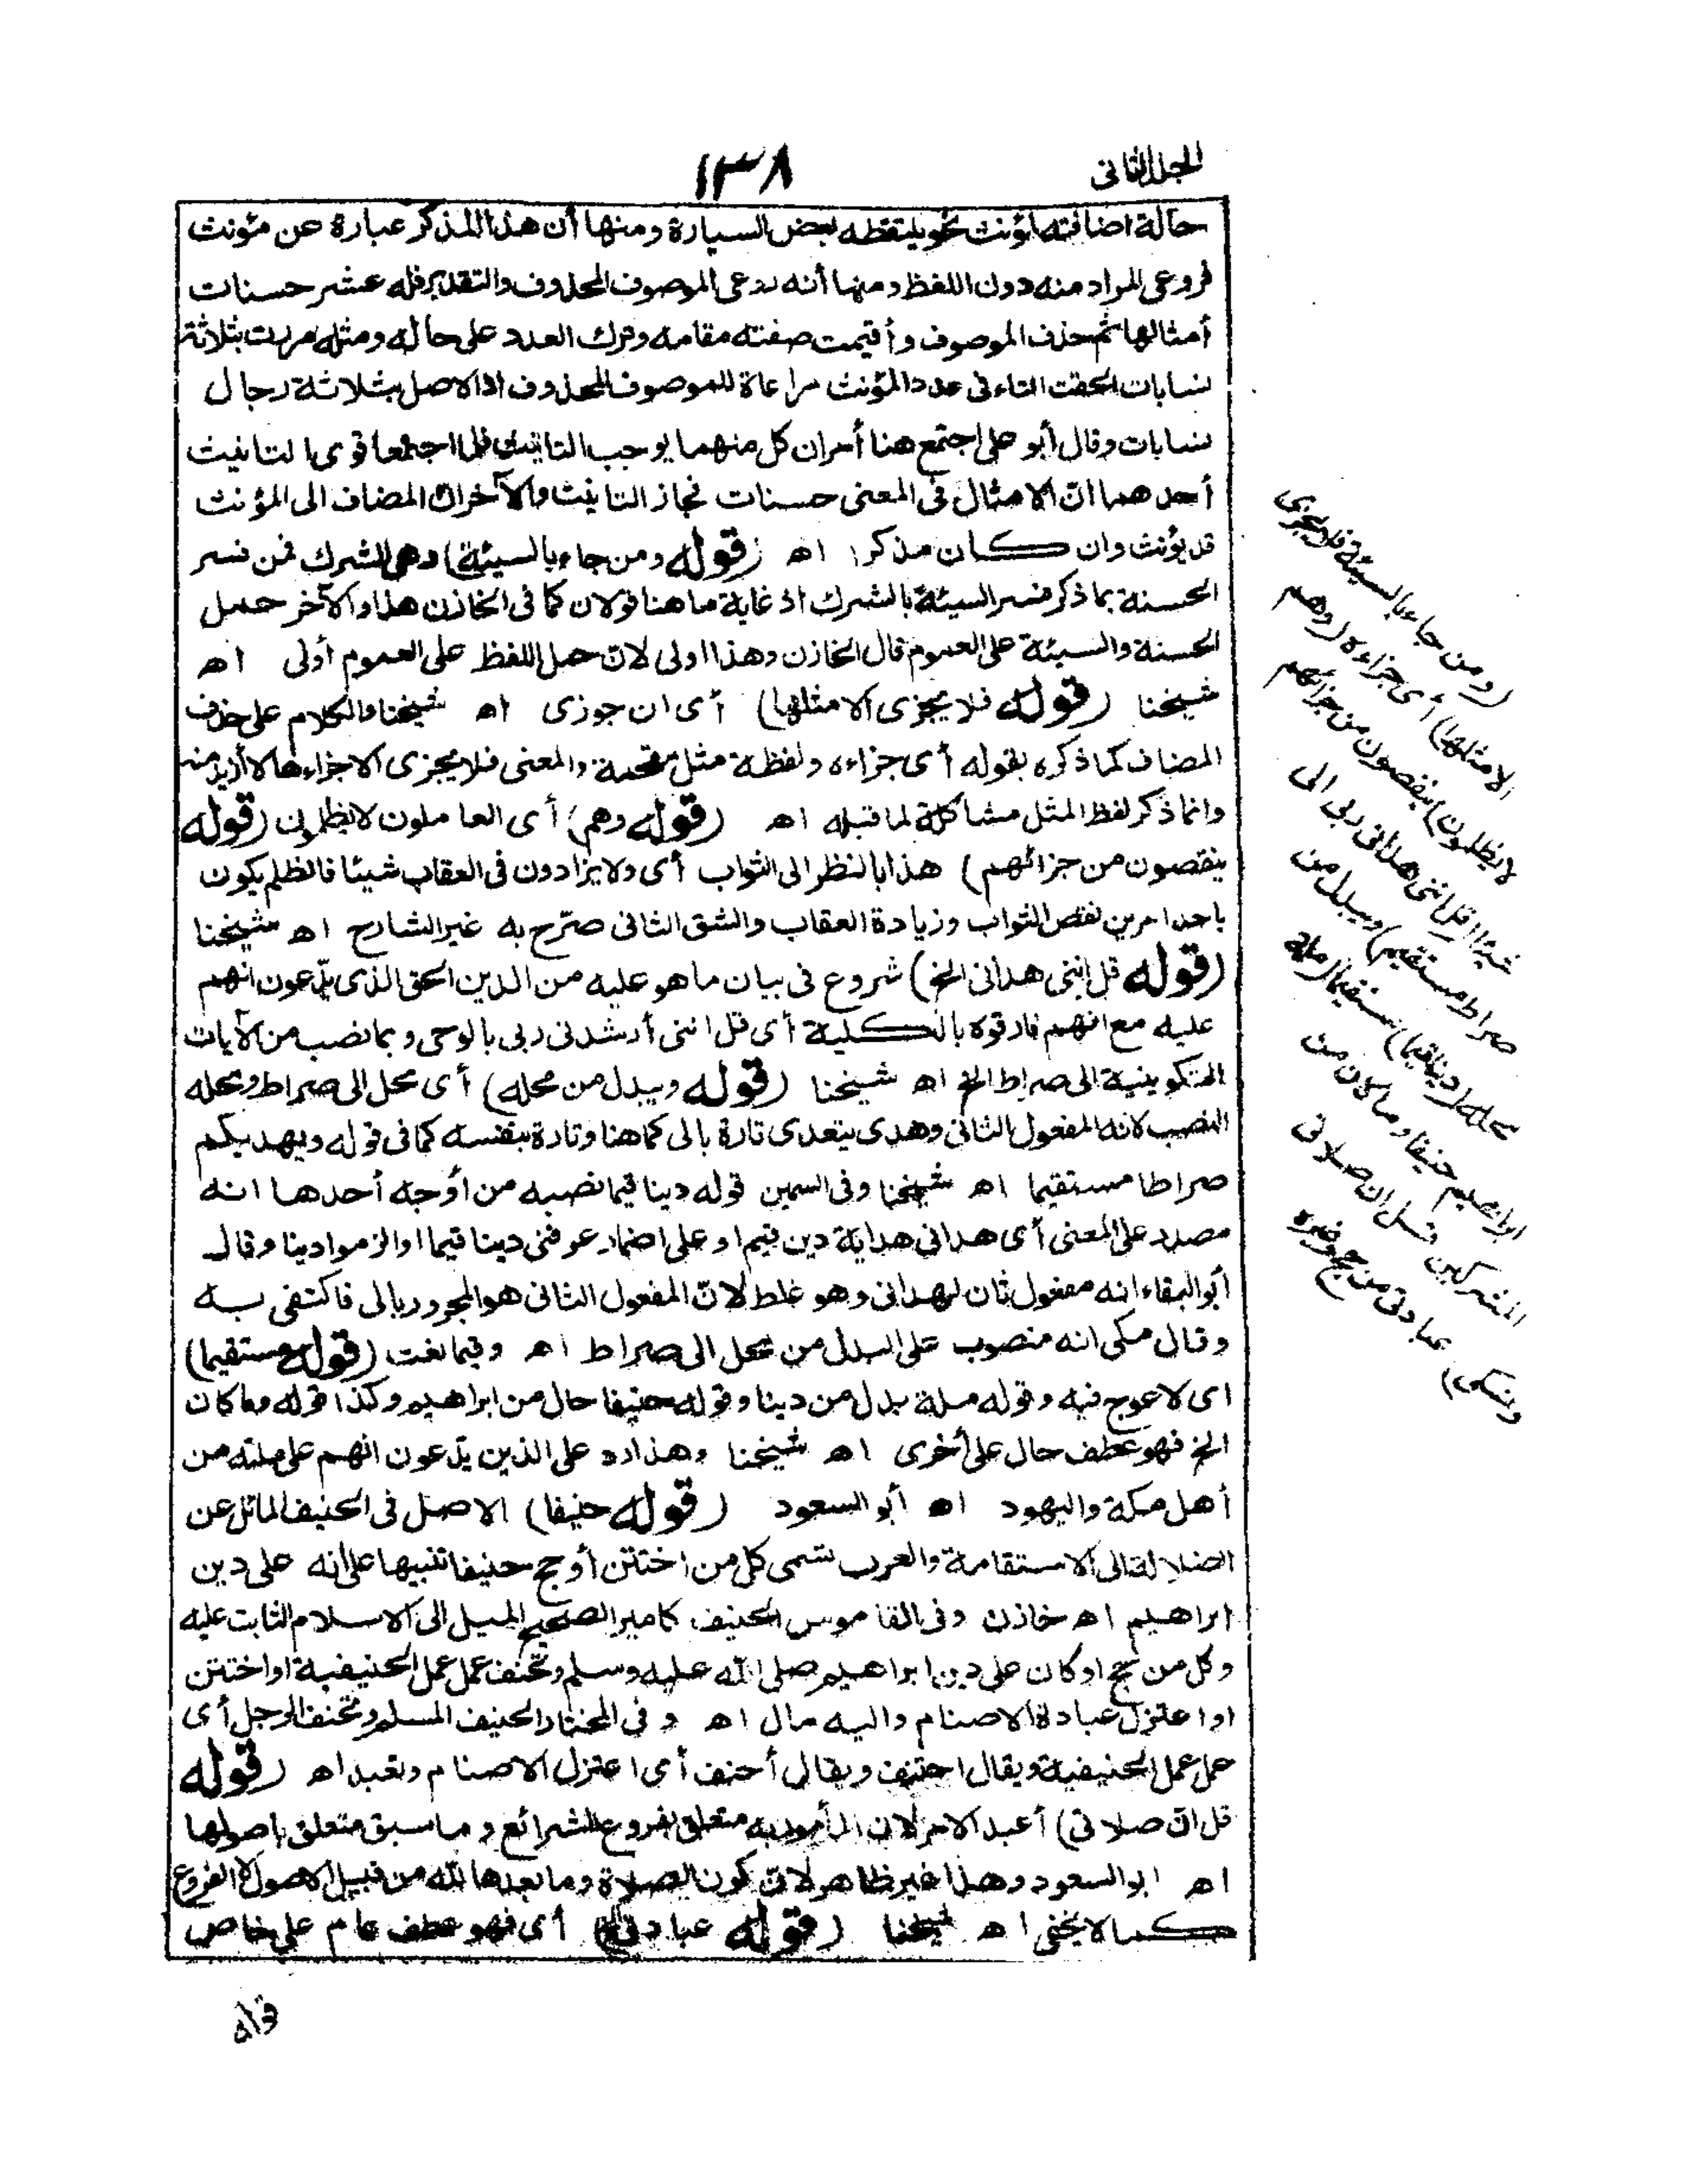 الجلد الثانى
١٣٨
حالة اضافته لمؤنث نحو يلتقطه بعض السيارة ومنها أن هذا المذكر عبارة عن مؤنث
فروعى المراد منه دون اللفظ ومنها أنه روعى الموصوف المحذوف والتقدير فله عشر حسنات
أمثالها ثم حذف الموصوف وأقيمت صفته مقامه وترك العدد على حاله ومثله مررت بثلاثة
نسابات ألحقت التاء فى عدد المؤنث مراعاة للموصوف المحذوف اذ الاصل بثلاثة رجال
نسابات وقال أبو على اجتمع هنا أمران كل منهما يوجب التانيث فلما اجتمعا قوى التانيث
أحدهما ان الامثال فى المعنى حسنات فجاز التانيث والآخر ان المضاف الى المؤنث
قد يؤنث وان كان مذكرا اه (قوله ومن جاء بالسيئة) وهى الشرك فمن فسر
الحسنة بما ذكر فسر السيئة بالشرك اذ غاية ما هنا قولان كما فى الخازن هذا والآخر حمل
الحسنة والسيئة على العموم قال الخازن وهذا اولى لان حمل اللفظ على العموم أولى اه
شيخنا (قوله فلا يجزى الا مثلها) أى ان جوزى اه شيخنا والكلام على حذف
المضاف كما ذكره بقوله أى جزاءه ولفظة مثل مقحمة والمعنى فلا يجزى الا جزاءها لا أزيد منه
وانما ذكر لفظ المثل مشاكلة لما قبله اه (قوله وهم) أى العاملون لا يظلمون (قوله
ينقصون من جزائهم) هذا بالنظر الى الثواب أى ولا يزادون فى العقاب شيئا فالظلم يكون
باحد امرين نقص الثواب وزيادة العقاب والشق الثانى صرّح به غير الشارح اه شيخنا
(قوله قل اننى هدانى الخ) شروع فى بيان ما هو عليه من الدين الحق الذى يدّعون انهم
عليه مع انهم فارقوه بالكلية أى قل اننى أرشدنى ربى بالوحى وبما نصب من الآيات
التكوينية الى صراط الخ اه شيخنا (قوله ويبدل من محله) أى محل الى صراط ومحله
النصب لانه المفعول الثانى وهدى يتعدى تارة بالى كما هنا وتارة بنفسه كما فى قوله ويهديكم
صراطا مستقيما اه شيخنا وفى السمين قوله دينا قيما نصبه من أوجه أحدها انه
مصدر على المعنى أى هدانى هداية دين قيم او على اضمار عرفنى دينا قيما او الزموا دينا وقال
أبو البقاء انه مفعول ثان لهدانى وهو غلط لان المفعول الثانى هو المجرور بالى فاكتفى به
وقال مكى انه منصوب على البدل من محل الى صراط اه وقيما نعت (قوله مستقيما)
اى لا عوج فيه وقوله ملة بدل من دينا وقوله حنيفا حال من ابراهيم وكذا قوله وما كان
الخ فهو عطف حال على أخرى اه شيخنا وهذا رد على الذين يدّعون انهم على ملته من
أهل مكة واليهود اه أبو السعود (قوله حنيفا) الاصل فى الحنيف المائل عن
الضلالة الى الاستقامة والعرب تسمى كل من اختتن أو حج حنيفا تنبيها على انه على دين
ابراهيم اه خازن وفى القاموس الحنيف كامير الصحيح الميل الى الاسلام الثابت عليه
وكل من حج او كان على دين ابراهيم صلى الله عليه وسلم وتحنف عمل عمل الحنيفية او اختتن
او اعتزل عبادة الاصنام واليه مال اه وفى المختار الحنيف المسلم وتحنف الرجل أى
عمل عمل الحنيفية ويقال احتنف ويقال أحنف أى اعتزل الاصنام وتعبد اه (قوله
قل ان صلاتى) أعيد الامر لان المأمور به متعلق بفروع الشرائع وما سبق متعلق باصولها
اه ابو السعود وهذا غير ظاهر لان كون الصلاة وما بعدها لله من قبيل الاصول لا الفروع
كما لا يخفى اه شيخنا (قوله عبادتى الخ) أى فهو عطف عام على خاص
(ومن جاء بالسيئة فلا يجزى
الا مثلها) أى جزاءه (وهم
لا يظلمون) ينقصون من جزائهم
شيئا (قل اننى هدانى ربى الى
صراط مستقيم) ويبدل من
محله (دينا قيما) مستقيما (ملة
ابراهيم حنيفا وما كان من
المشركين قل ان صلاتى
ونسكى) عبادتى من حج وغيره